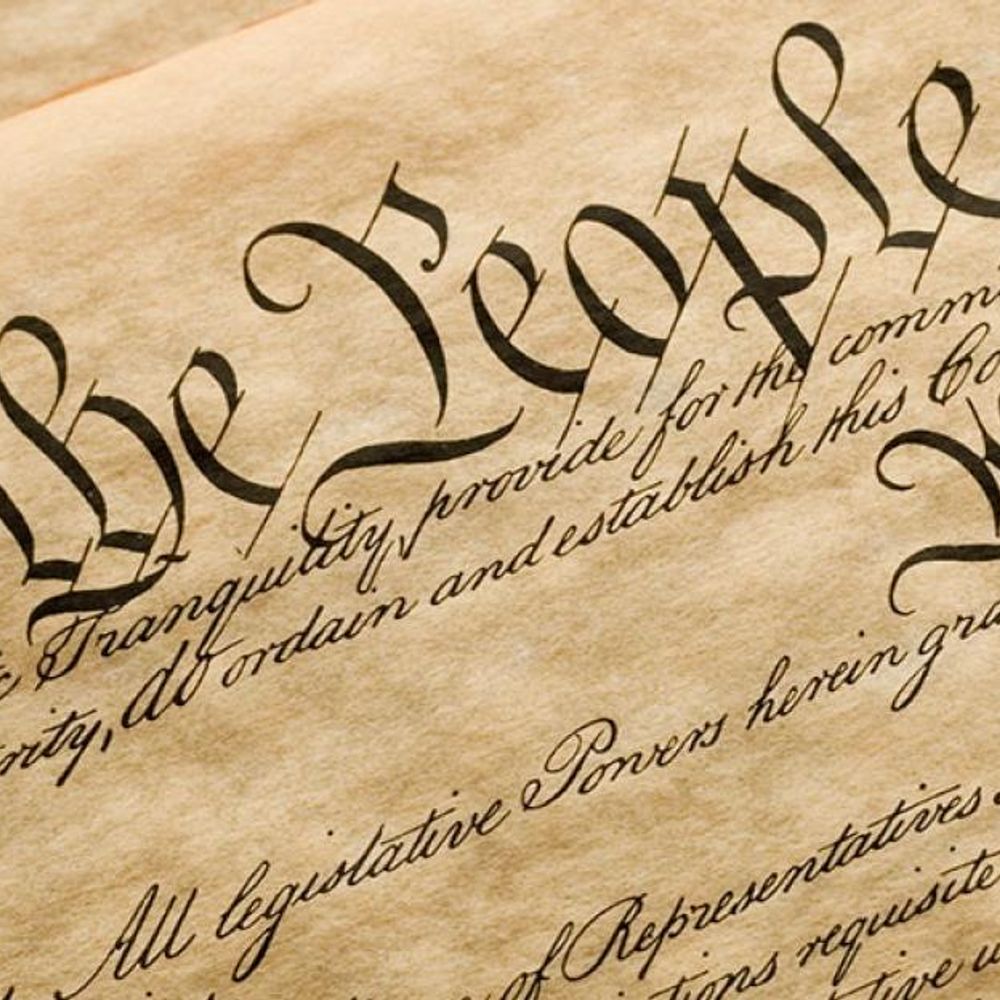 the People
Tranquility, provide for the comm
rity, do ordain and establish this Co
All legislative Powers herein gra
of Representatives
tions requisite
tive